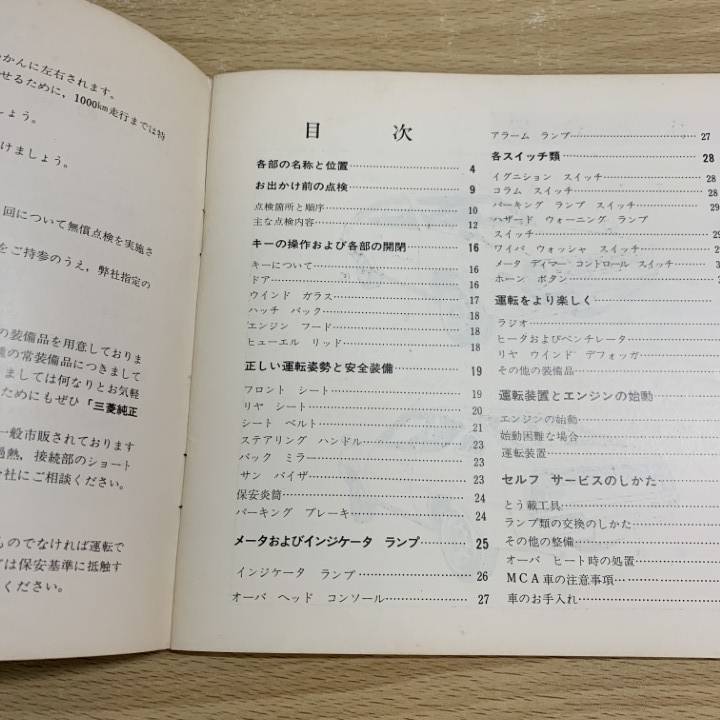 かんに左右されます。
せるために，1000km走行までは特
しょう。
けましょう。
回について無償点検を実施さ
をご持参のうえ，弊社指定の
の装備品を用意しておりま
の常装備品につきまして
ましては何なりとお気軽
ためにもぜひ「三菱純正
一般市販されております
過熱，接続部のショート
会社にご相談ください。
ものでなければ運転で
ては保安基準に抵触す
ください。
目 次
各部の名称と位置 4
お出かけ前の点検 9
点検箇所と順序 10
主な点検内容 12
キーの操作および各部の開閉 16
キーについて 16
ドア 16
ウインド ガラス 17
ハッチ バック 18
エンジン フード 18
ヒューエル リッド 18
正しい運転姿勢と安全装備 19
フロント シート 19
リヤ シート 20
シート ベルト 21
ステアリング ハンドル 23
バック ミラー 23
サン バイザ 23
保安炎筒 24
パーキング ブレーキ 24
メータおよびインジケータ ランプ 25
インジケータ ランプ 26
オーバ ヘッド コンソール 27
アラーム ランプ 27
各スイッチ類 28
イグニション スイッチ 28
コラム スイッチ 28
パーキング ランプ スイッチ 29
ハザード ウォーニング ランプ
スイッチ 29
ワイパ ウォッシャ スイッチ
メータ ディマー コントロール スイッチ
ホーン ボタン
運転をより楽しく
ラジオ
ヒータおよびベンチレータ
リヤ ウインド デフォッガ
その他の装備品
運転装置とエンジンの始動
エンジンの始動
始動困難な場合
運転装置
セルフ サービスのしかた
とう載工具
ランプ類の交換のしかた
その他の整備
オーバ ヒート時の処置
MCA車の注意事項
車のお手入れ